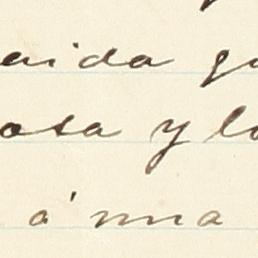 aida g
osa y lo
á una